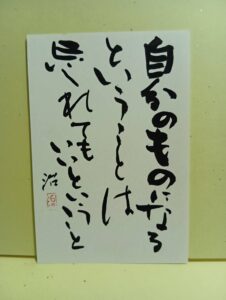 自分のものになる
ということは
忘れても
いいということ